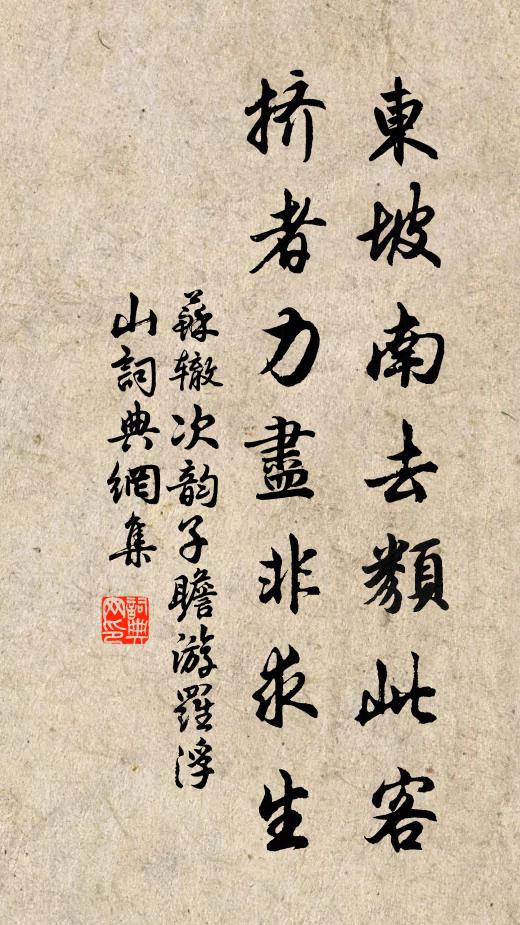 東坡南去類此客
挤者力盡非求生
蘇辙次韵子瞻游羅浮
山詞典網集
詞典
网印